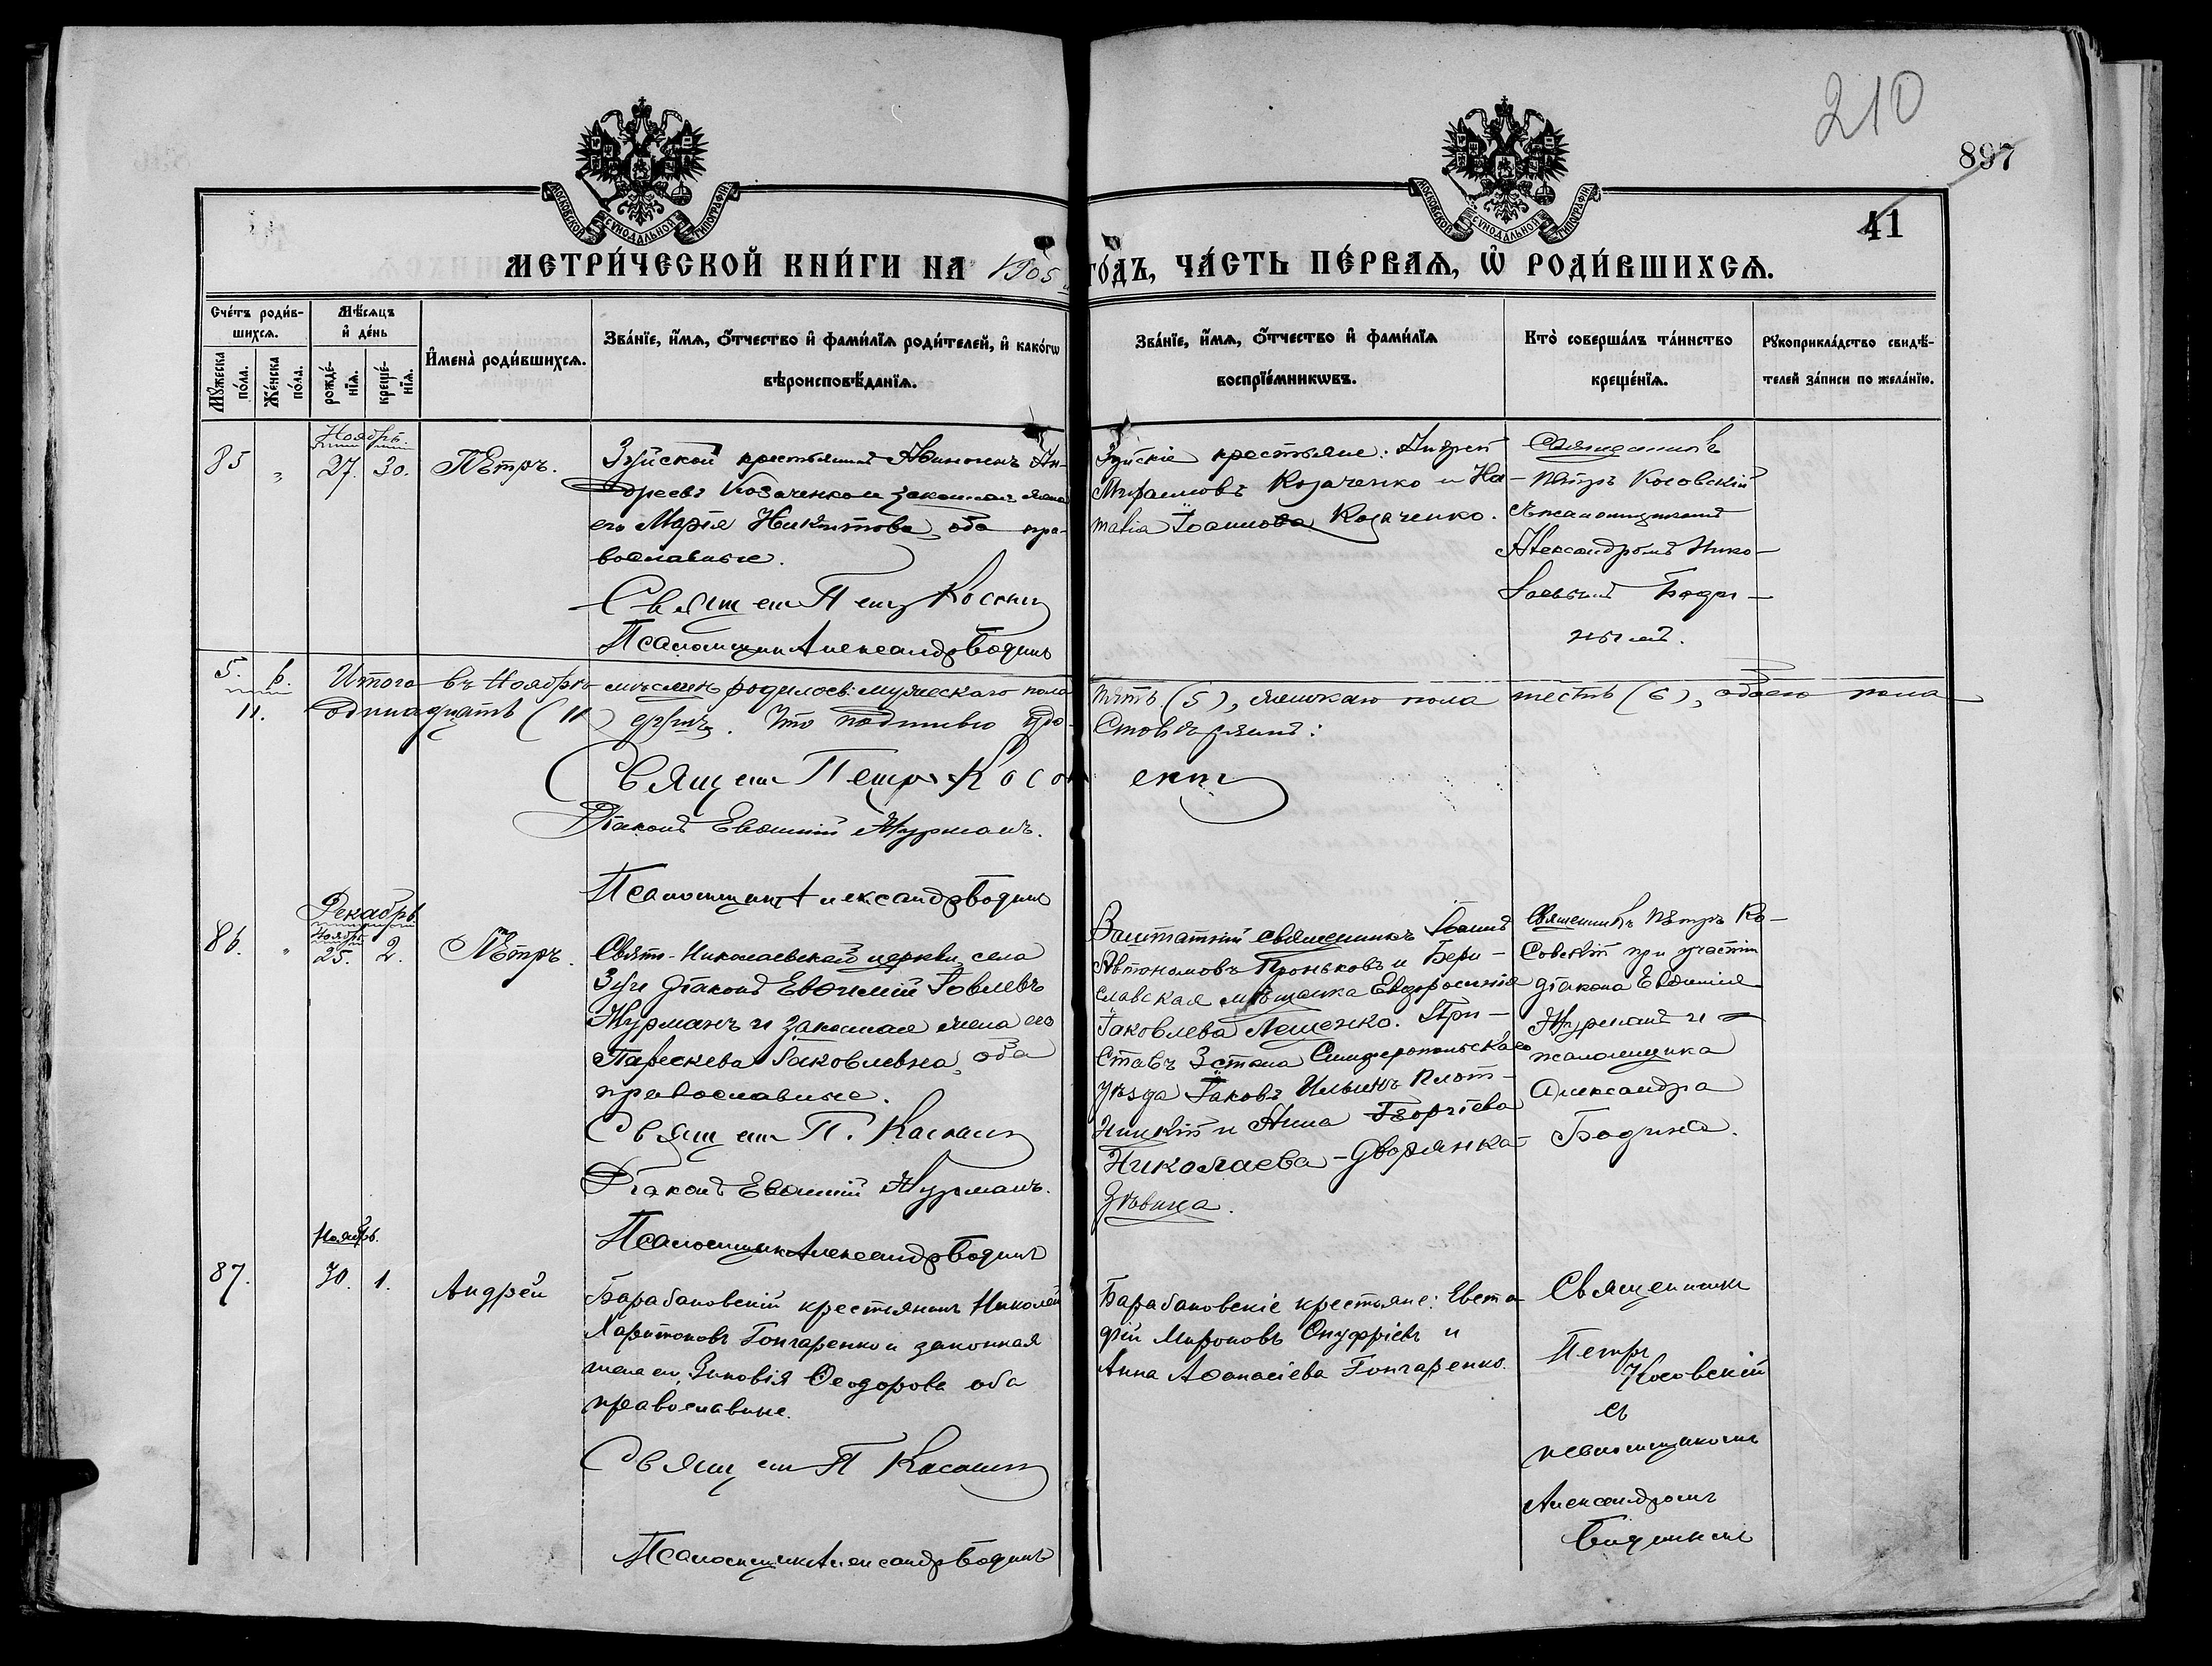 210
897
41
МОСКОВСКОЙ СѴНОДАЛЬНОЙ ТИПОГРАФІИ
МОСКОВСКОЙ СѴНОДАЛЬНОЙ ТИПОГРАФІИ
МЕТРИ́ЧЕСКОЙ КНИ́ГИ НА 1905 ГО́ДЪ, ЧА́СТЬ ПЕ́РВАѦ, Ѡ҆ РОДИ́ВШИХСѦ.
Сче́тъ роди́в-
шихсѧ.
Мꙋ́жеска
по́ла.
Же́нска
по́ла.
Мѣ́сѧцъ
и҆ де́нь
рожде́-
нїѧ.
креще́-
нїѧ.
И҆мена̀ роди́вшихсѧ.
Зва́нїе, и҆́мѧ, ѻ҆́тчество и҆ фами́лїѧ роди́телей, и҆ како́гѡ
вѣроисповѣ́данїѧ.
Зва́нїе, и҆́мѧ, ѻ҆́тчество и҆ фами́лїѧ
воспрїе́мникѡвъ.
Кто̀ соверша́лъ та́инство
креще́нїѧ.
Рꙋкоприкла́дство свидѣ́-
телей за́писи по жела́нїю.
85 " Ноябрь 27. 30. Пѣтръ.
Зуйской крестьянинъ Ан-
дреевъ Козаченко и законная жена
его Марія Никитова, оба пра-
вославные.
Священ Петр
Псаломщик Александр Бодинъ
Зуйскіе крестьяне: Андрей
Митрафановъ Козаченко и На-
талія Іоаннова Козаченко.
Священникъ
Пѣтръ Косовскій
съ псаломщикомъ
Александромъ Нико-
лаевымъ Боди-
нымъ.
5. 6. Итого въ Ноябрѣ мѣсяцѣ родилось: мужескаго пола пять (5), женскаго пола шесть (6), обоего пола
11. одинадцать (11) душъ. Что подписью удо-
стовѣряемъ:
Священ Петръ Косовскій
Діаконъ Евѳимій Журманъ.
Псаломщик Александр Бодинъ
Декабрь
86. " Ноябрь 25. 2. Пѣтръ.
Свято-Николаевской церкви, села
Зуи діаконъ Евѳимій Іовлевъ
Журманъ и законная жена его
Параскева Іаковлевна, оба
православные.
Священ П.
Діаконъ Евѳимій Журманъ.
Псаломщик Александр Бодинъ
Заштатній священникъ Іоаннъ
Автономовъ Проньковъ и Бери-
славская мѣщанка Евдросинія
Іаковлева Лещенко. При-
ставъ 3 стана Симферопольскаго
уѣзда Іаковъ Ильинъ Плот-
ницкій и Анна Георгіева
Николаева - дворянка
дѣвица.
Священникъ Пѣтръ Ко-
совскій при участіи
діакона Евѳимія
Журмана и
псаломщика
Александра
Бодина.
87. Ноябрь. 30. 1. Андрей
Барабановскій крестьянинъ Николай
Харитоновъ Гончаренко и законная
жена его, Зиновія Ѳеодорова оба
православные.
Священ П
Псаломщик Александр Бодинъ
Барабановскіе крестьяне: Евста-
фій Мироновъ Онуфріевъ и
Анна Аѳанасіева Гончаренко.
Священникъ
Петръ
Косовскій
съ
псаломщикомъ
Александромъ
Бодинымъ